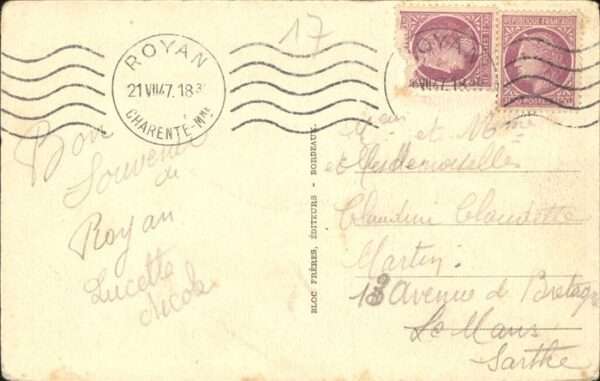 17
ROYAN
21 VII 47. 18 3
CHARENTE-Mme
ROYAN
CHARENTE
REPUBLIQUE FRANÇAISE
POSTES
Bon
Souvenir
de
Royan
Lucette
Nicole
BLOC FRÈRES, ÉDITEURS - BORDEAUX.
et Mme
et Mesdemoiselles
Claudine Claudette
Martin.
13 Avenue de Bretagne
Le Mans
Sarthe